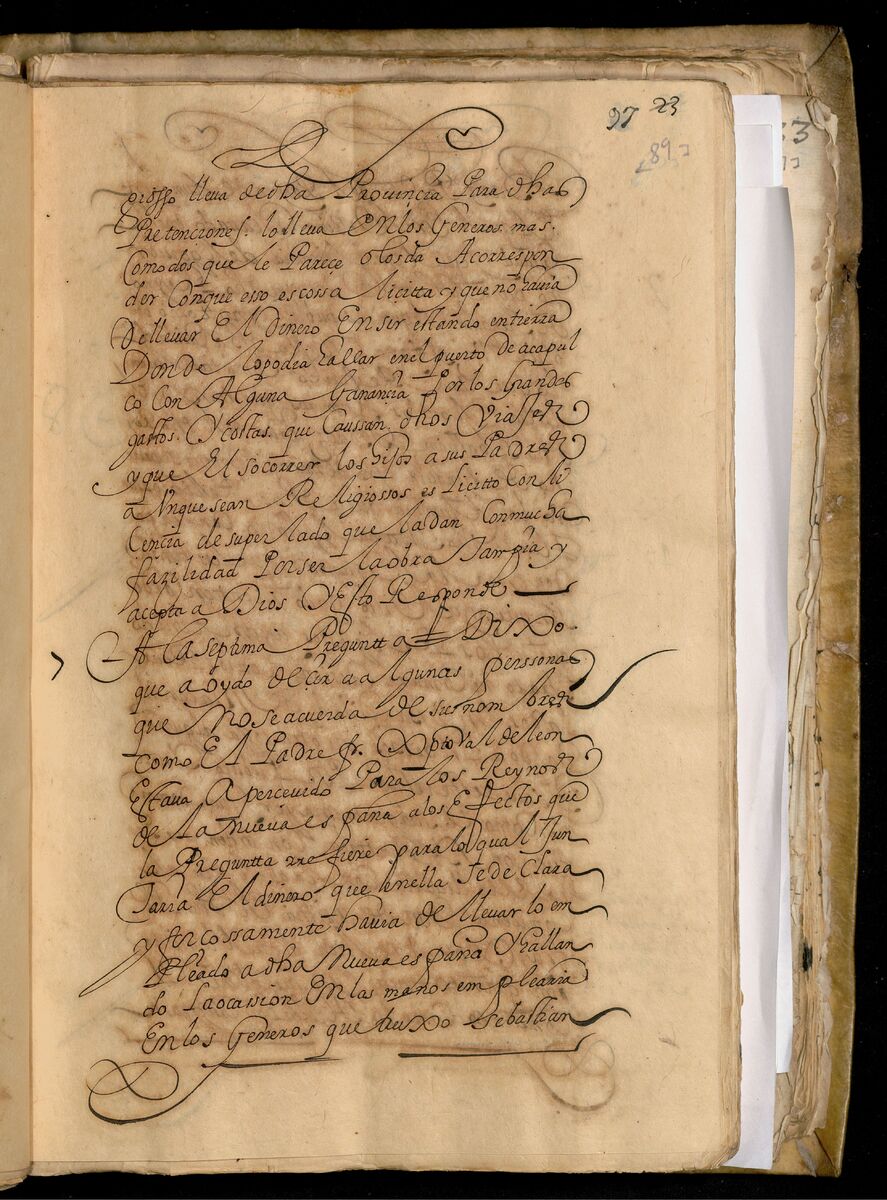 97 23
[89]
giosso lleva de dha Provinçia Para dhas
Pretenciones. lo lleva En los Generos mas.
Comodos que le Pareçe o los da A correspon
der Conque esso es cossa licitta y que no havia
De llevar El dinero En ser estando en tierra
Donde lo podia hallar en el puerto de acapul
co Con Alguna Ganancia Por los Grandes
gastos. Y costas. que Caussan. dhos Viajes
y que El socorrer los hijos a sus Padres
a Unque sean Religiossos es Licitto Con li
cencia de su perlado que la dan Con mucha
fazilidad Por ser la obra Tan pia y
acepta a Dios Y Esto Responde
A la septima Pregunta Dixo
que a oydo deçir a algunas perssonas
que No se acuerda de sus nombres
como El Padre fr. Xptoval de leon
Estava Apercevido Para los Reynos
de la nueva españa a los Effectos que
la Pregunta rrefiere para lo qual Jun
taria El dinero que en ella se de Clara
y forcossamente havia de llevarlo em
Pleado a dha Nueva españa Y hallan
do La ocassion En las manos emplearia
En los Generos que truxo Sebasthian